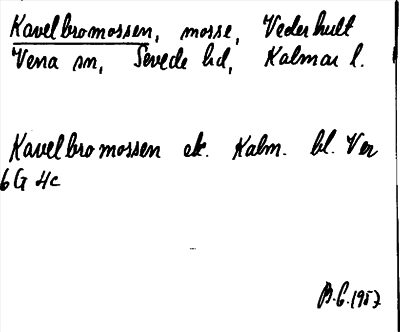 Kavelbromossen, mosse, Vederhult
Vena sn, Sevede hd, Kalmar l.
Kavelbromossen ek. Kalm. bl. Ver
6G 4c
B.G. 1957